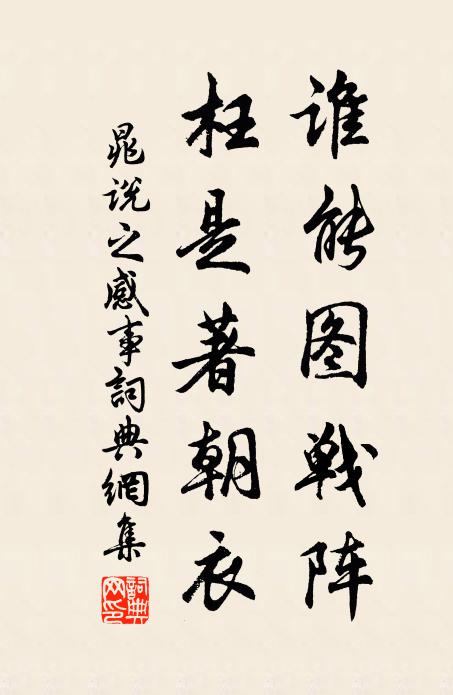 谁能图戦阵
枉是著朝衣
晁说之感事詞典網集
詞典网印